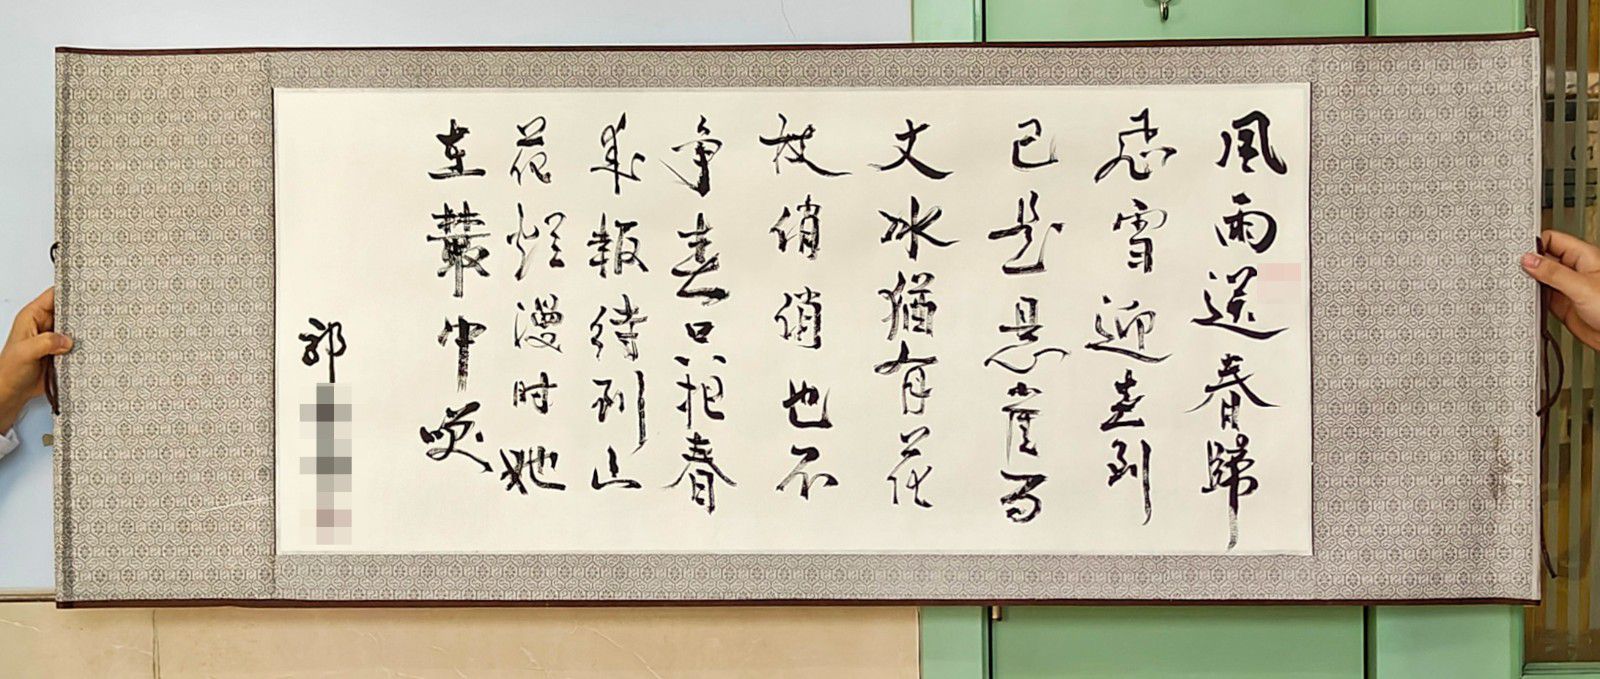 風雨送春歸
飛雪迎春到
已是悬崖百
丈冰猶有花
枝俏俏也不
争春只把春
来報待到山
花烂漫时她
在叢中咲
郭